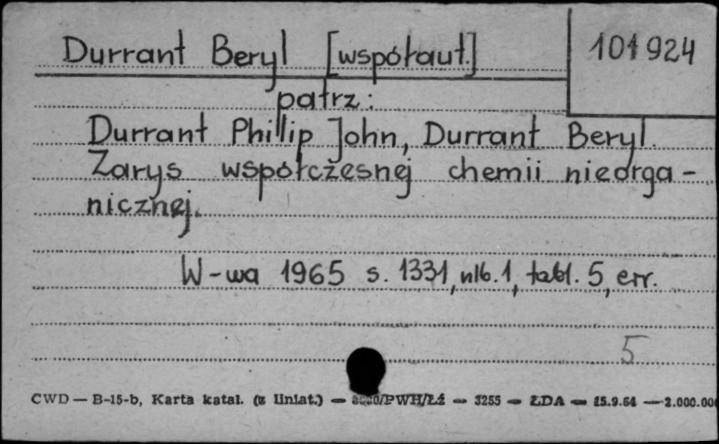 Durrant Beryl [współaut.]
101924
patrz:
Durrant Phillip John, Durrant Beryl.
Zarys współczesnej chemii nieorga-
nicznej.
W-wa 1965 s. 1331, nlb. 1, tabl. 5, err.
5
CWD — B-15-b, Karta katal. (z liniat.) — /PWH/Łź — 3255 — ŁDA — 15.9.64 — 2.000.00